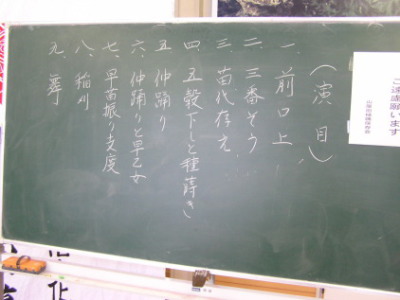 （演目）
一、前口上
二、三番そう
三、苗代存え
四、五穀下しと種蒔き
五、仲踊り
六、仲踊りと早乙女
七、早苗振り支度
八、稲刈
九、舞
ご遠慮願います